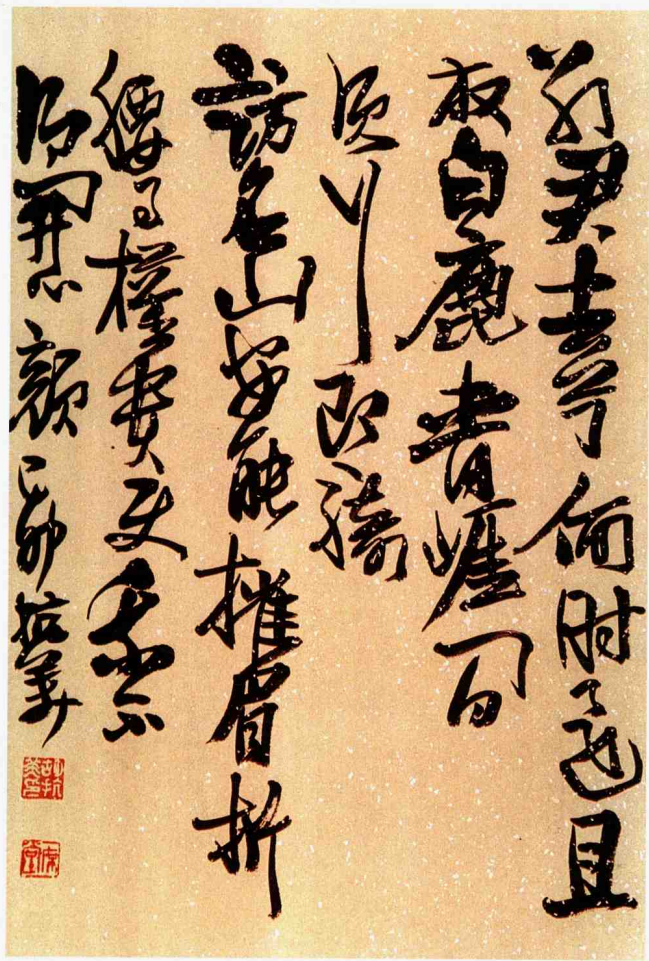 別君去兮何时還且
放白鹿青崖間
須行即騎
訪名山安能摧眉折
腰事權貴使我不
得開心顏己卯抗美
胡抗美印